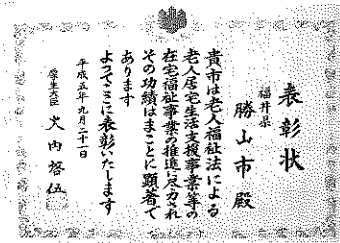 表彰状
福井県
勝山市殿
貴市は老人福祉法による
老人居宅生活支援事業等の
在宅福祉事業の推進に尽力され
その功績はまことに顕著で
あります
よってここに表彰いたします
平成五年九月二十一日
厚生大臣 大内啓伍